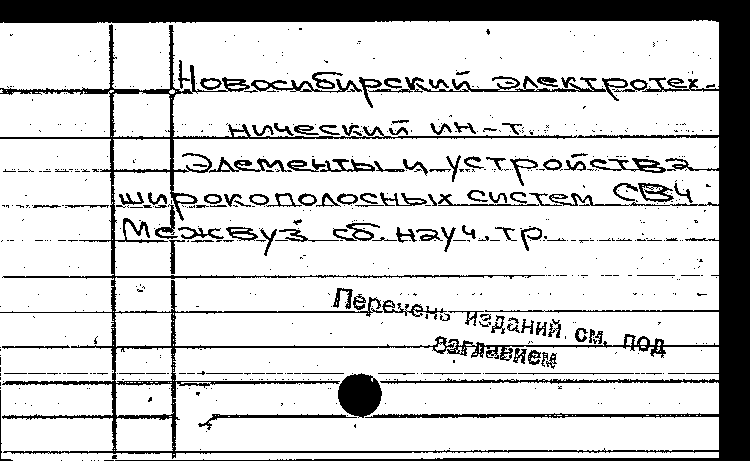 Новосибирский электротех-
нический ин-т.
Элементы и устройства
широкополосных систем СВЧ:
Межвуз. сб. науч. тр.
Перечень изданий см. под
заглавием